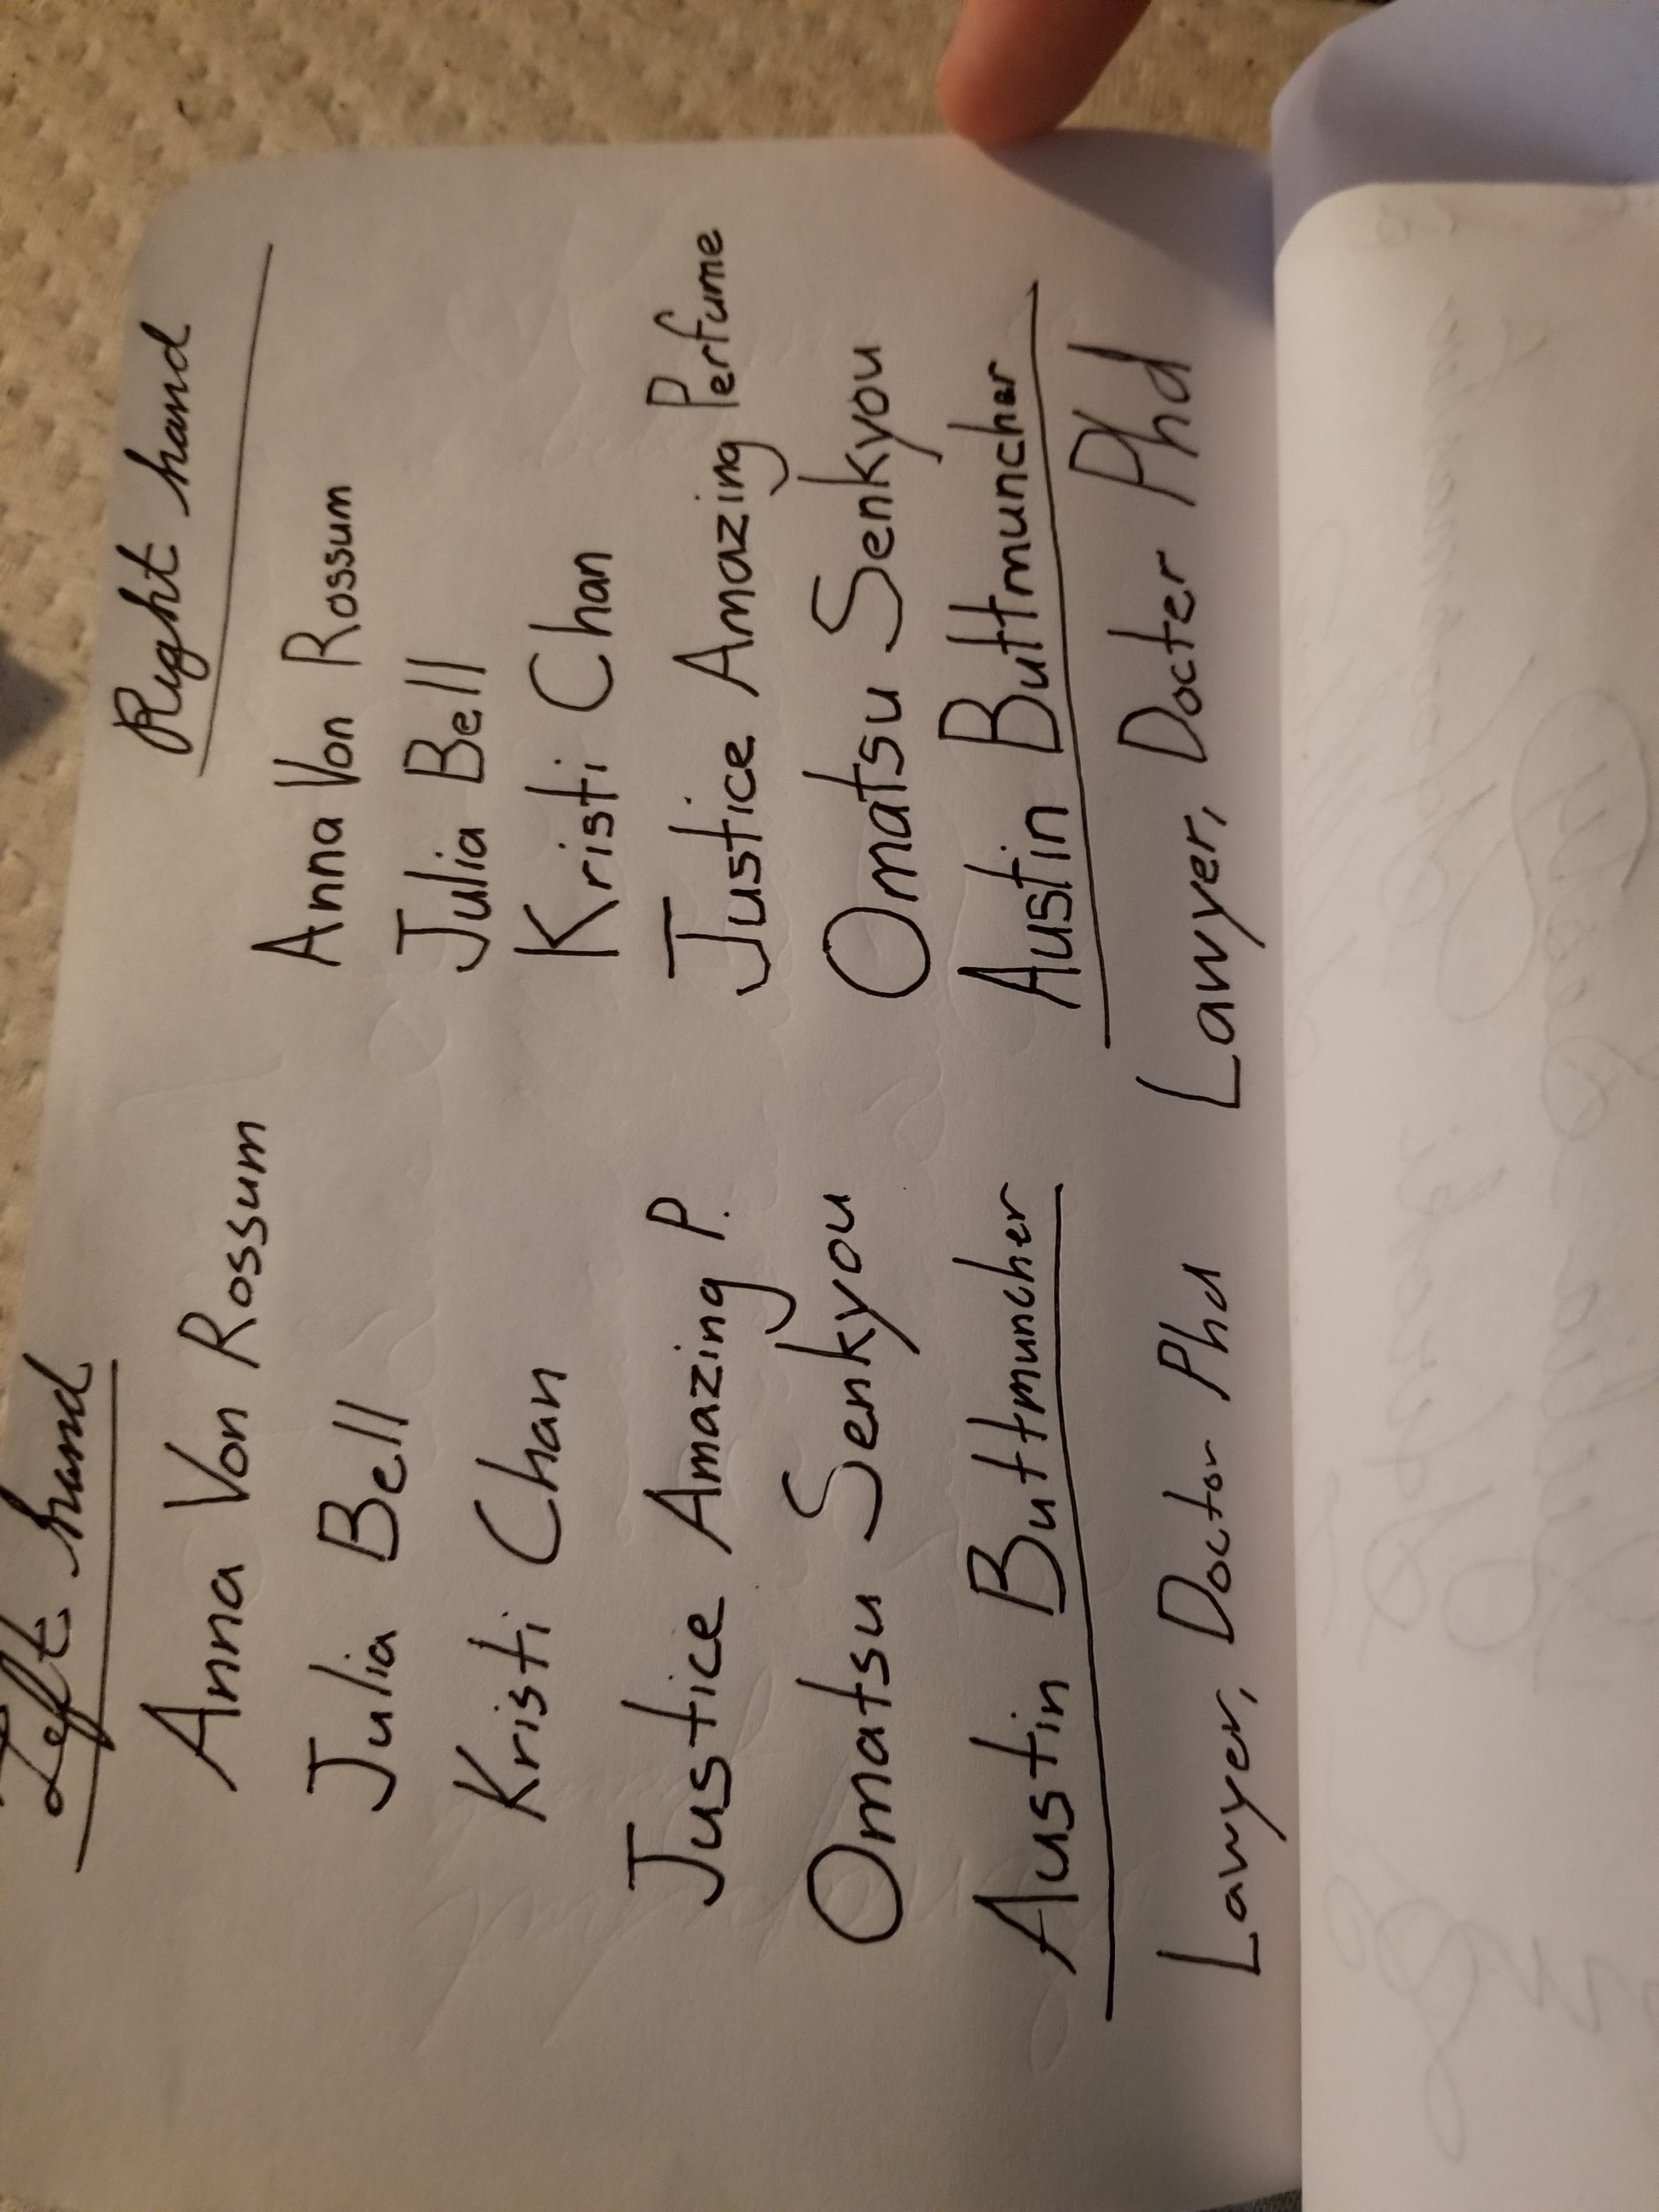 Left hand
Anna Von Rossum
Julia Bell
Kristi Chan
Justice Amazing P.
Omatsu Senkyou
Austin Buttmuncher
Lawyer, Doctor Phd
Right hand
Anna Von Rossum
Julia Bell
Kristi Chan
Justice Amazing Perfume
Omatsu Senkyou
Austin Buttmuncher
Lawyer, Docter Phd